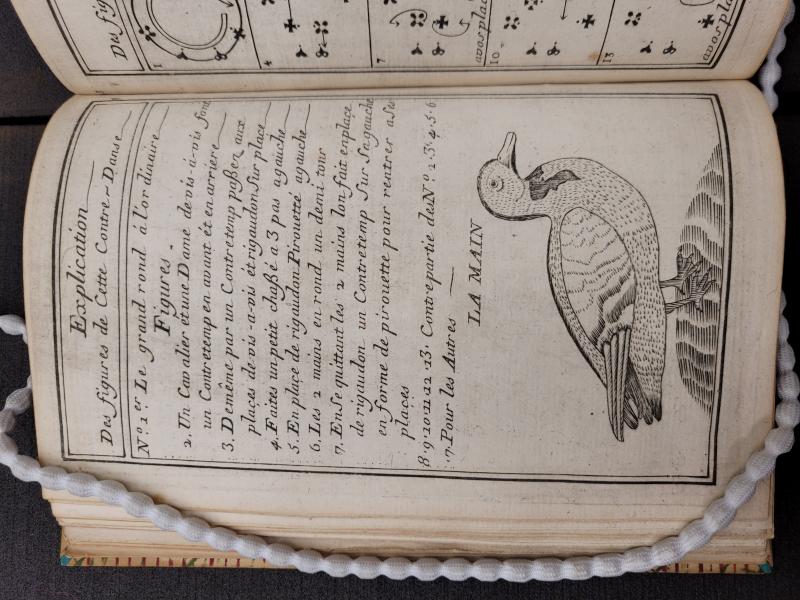 Explication
Des figures de Cette Contre-Danse
N.º 1.er Le grand rond á l'or dinaire
Figures
2. Un Cavalier et une Dame de vis-á-vis font
un Contretemp en avant ét en arriere
3. De même par un Contretemp passez aux
places de vis-a-vis ét rigaudon Sur place
4. Faites un petit chassé a 3 pas a gauche
5. En place de rigaudon Pirouetté a gauche
6. Les 2 mains en rond un demi tour
7. En Se quittant les 2 mains l'on fait en place
de rigaudon un Contretemp Sur Sa gauche
en forme de pirouette pour rentrer a Ses
places
8. 9. 10. 11. 12. 13. Contre partie des Nº. 2. 3. 4. 5. 6
.7. Pour les Autres
LA MAIN
Des fig
1
4
7
avos plac
10
13
avos pla